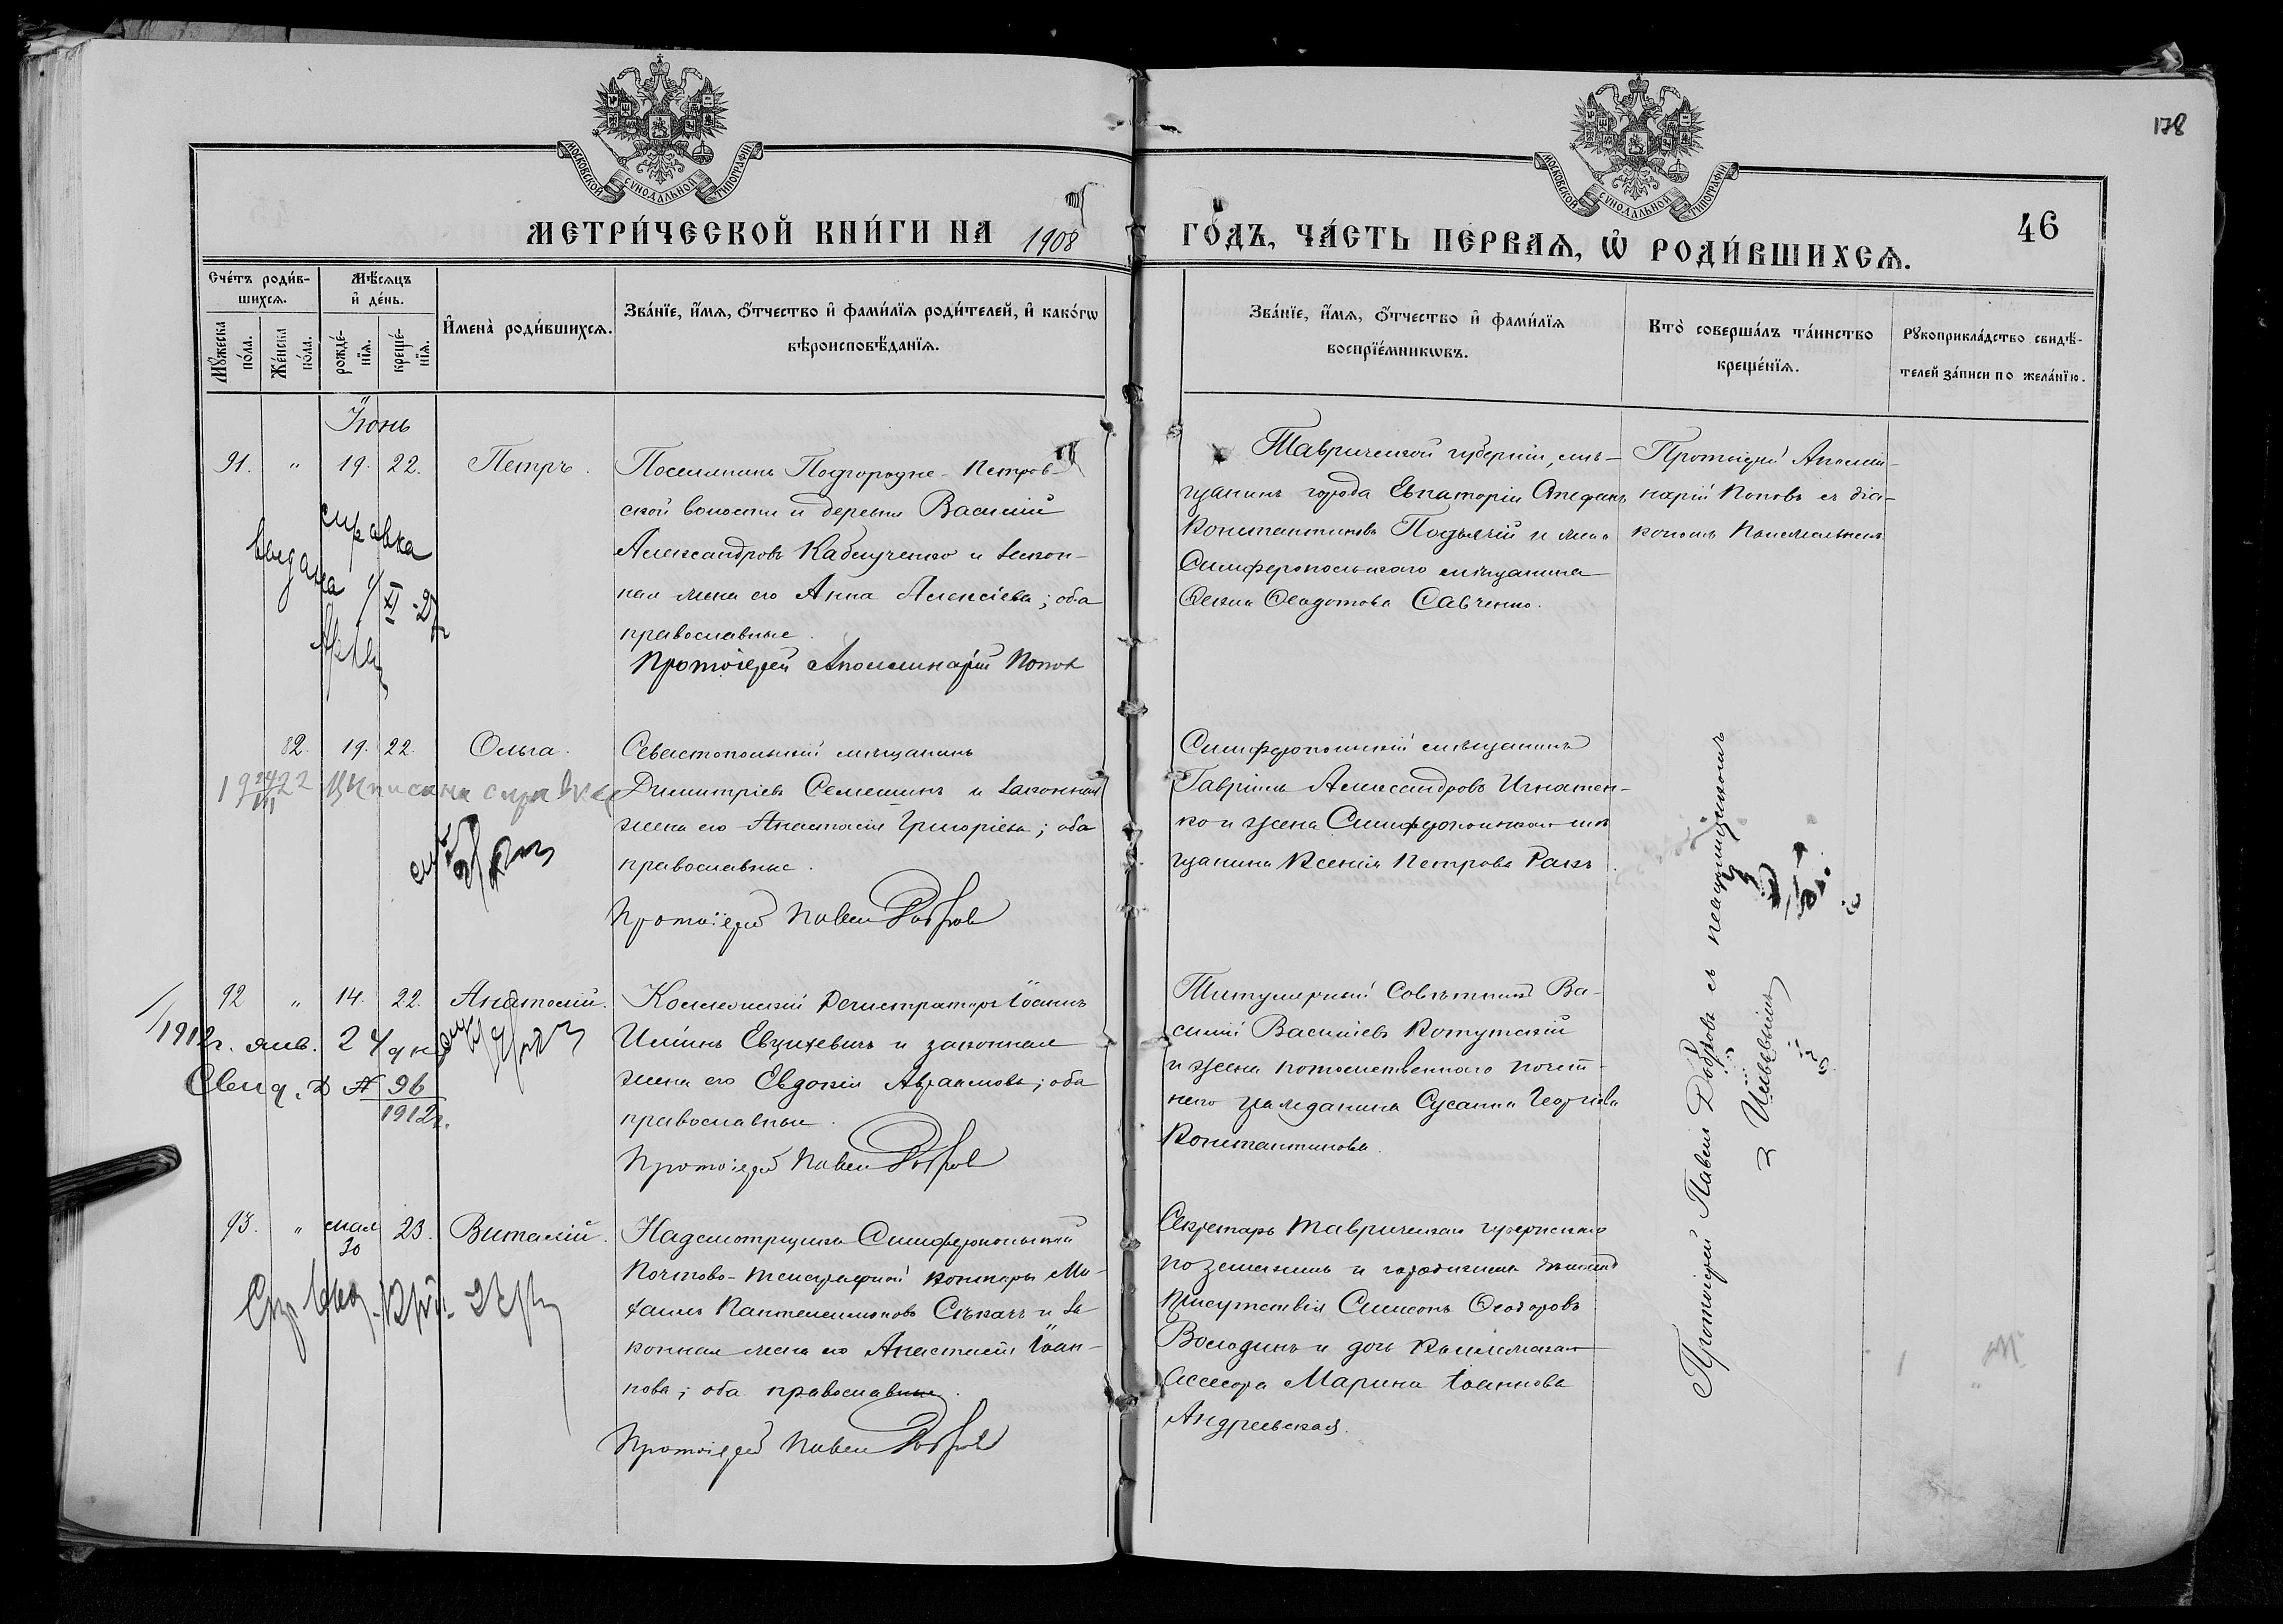 178
МОСКОВСКОЙ СѴНОДАЛЬНОЙ ТИПОГРАФІИ
МОСКОВСКОЙ СѴНОДАЛЬНОЙ ТИПОГРАФІИ
МЕТРИ́ЧЕСКОЙ КНИ́ГИ НА 1908 ГО́ДЪ, ЧА́СТЬ ПЕ́РВАЯ, Ѡ РОДИ́ВШИХСЯ.
46
Сче́тъ роди́в-
шихся.
Мѣ́сяцъ
и де́нь.
Мꙋ́жеска
по́ла.
Же́нска
по́ла.
рожде́-
нїя.
креще́-
нїя.
Имена̀ роди́вшихся.
Зва́нїе, и́мя, о́тчество и фами́лїя роди́телей, и како́гѡ
вѣроисповѣ́данїя.
Зва́нїе, и́мя, о́тчество и фами́лїя
воспрїе́мникѡвъ.
Кто̀ соверша́лъ та́инство
креще́нїя.
Рꙋкоприкла́дство свидѣ́-
телей за́писи по жела́нїю.
Іюнь
91. " 19. 22. Петръ.
Поселянинъ Подгородне-Петров-
ской волости и деревни Василій
Александровъ Каблученко и закон-
ная жена его Анна Алексіева; оба
православные.
Протоіерей Аполлинарій Попов
Таврической губерніи, мѣ-
щанинъ города Евпаторіи Стефанъ
Константиновъ Подъячій и жена
Симферопольскаго мѣщанина
Ѳекла Ѳеодотова Савченко.
Протоіерей Аполли-
нарій Поповъ съ діа-
кономъ
справка
выдана
82. 19. 22. Ольга.
Севастопольскій мѣщанинъ
Димитріев Семешинъ и законная
жена его Анастасія Григоріева; оба
православные.
Протоіерей Павел Добров
Симферопольскій мѣщанинъ
Гавріилъ Александровъ Игнатен-
ко и жена Симферопольскаго мѣ-
щанина Ксенія Петрова Ракъ.
1922 Выписана справка
92 " 14. 22. Анатолій.
Коллежскій Регистраторъ Іоаннъ
Иліинъ Евцихевичъ и законная
жена его Евдокія Авраамова; оба
православные.
Протоіерей Павел Добров
Титулярный Совѣтникъ Ва-
силій Василіевъ Котутскій
и жена потомственнаго почет-
наго гражданина Сусанна Георгіева
Константинова.
1912г. янв. 24 дня
Свид. № 96
1912г.
93. " мая 30 23. Виталій.
Надсмотрщика Симферопольской
Почтово-Телеграфной конторы Ми-
хаилъ Пантелеимоновъ Сѣкачъ и за-
конная жена его Анастасія Іоан-
нова; оба православные.
Протоіерей Павел Добров
Секретарь Таврическаго губернскаго
по земскимъ и городскимъ дѣламъ
Присутствія Симеонъ Ѳеодоровъ
Володинъ и дочь Коллежскаго
Ассесора Марина Іоаннова
Андреевская.
Протоіерей Павелъ Добровъ съ псаломщикомъ